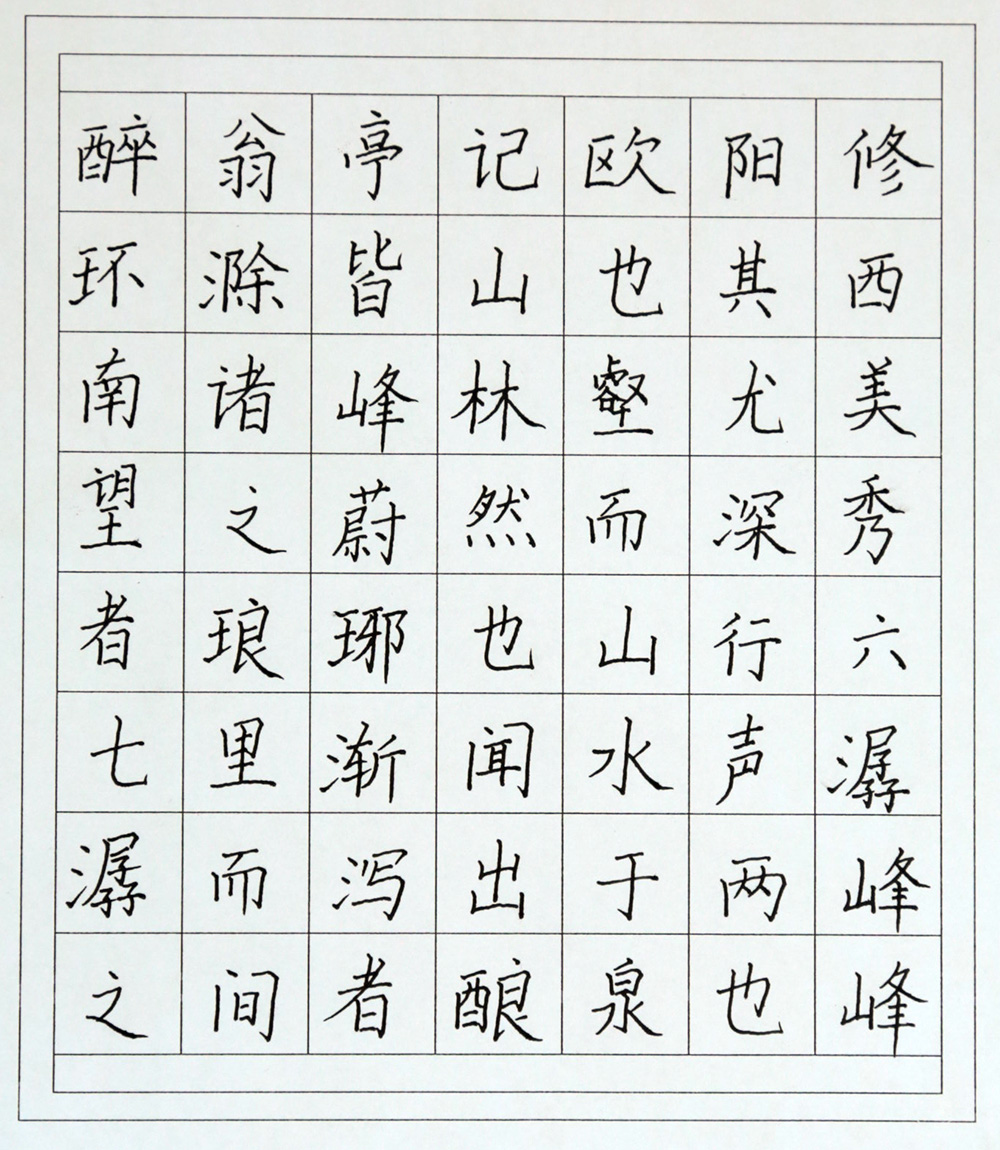 醉翁亭记欧阳修
环滁皆山也其西
南诸峰林壑尤美
望之蔚然而深秀
者琅琊也山行六
七里渐闻水声潺
潺而泻出于两峰
之间者酿泉也峰